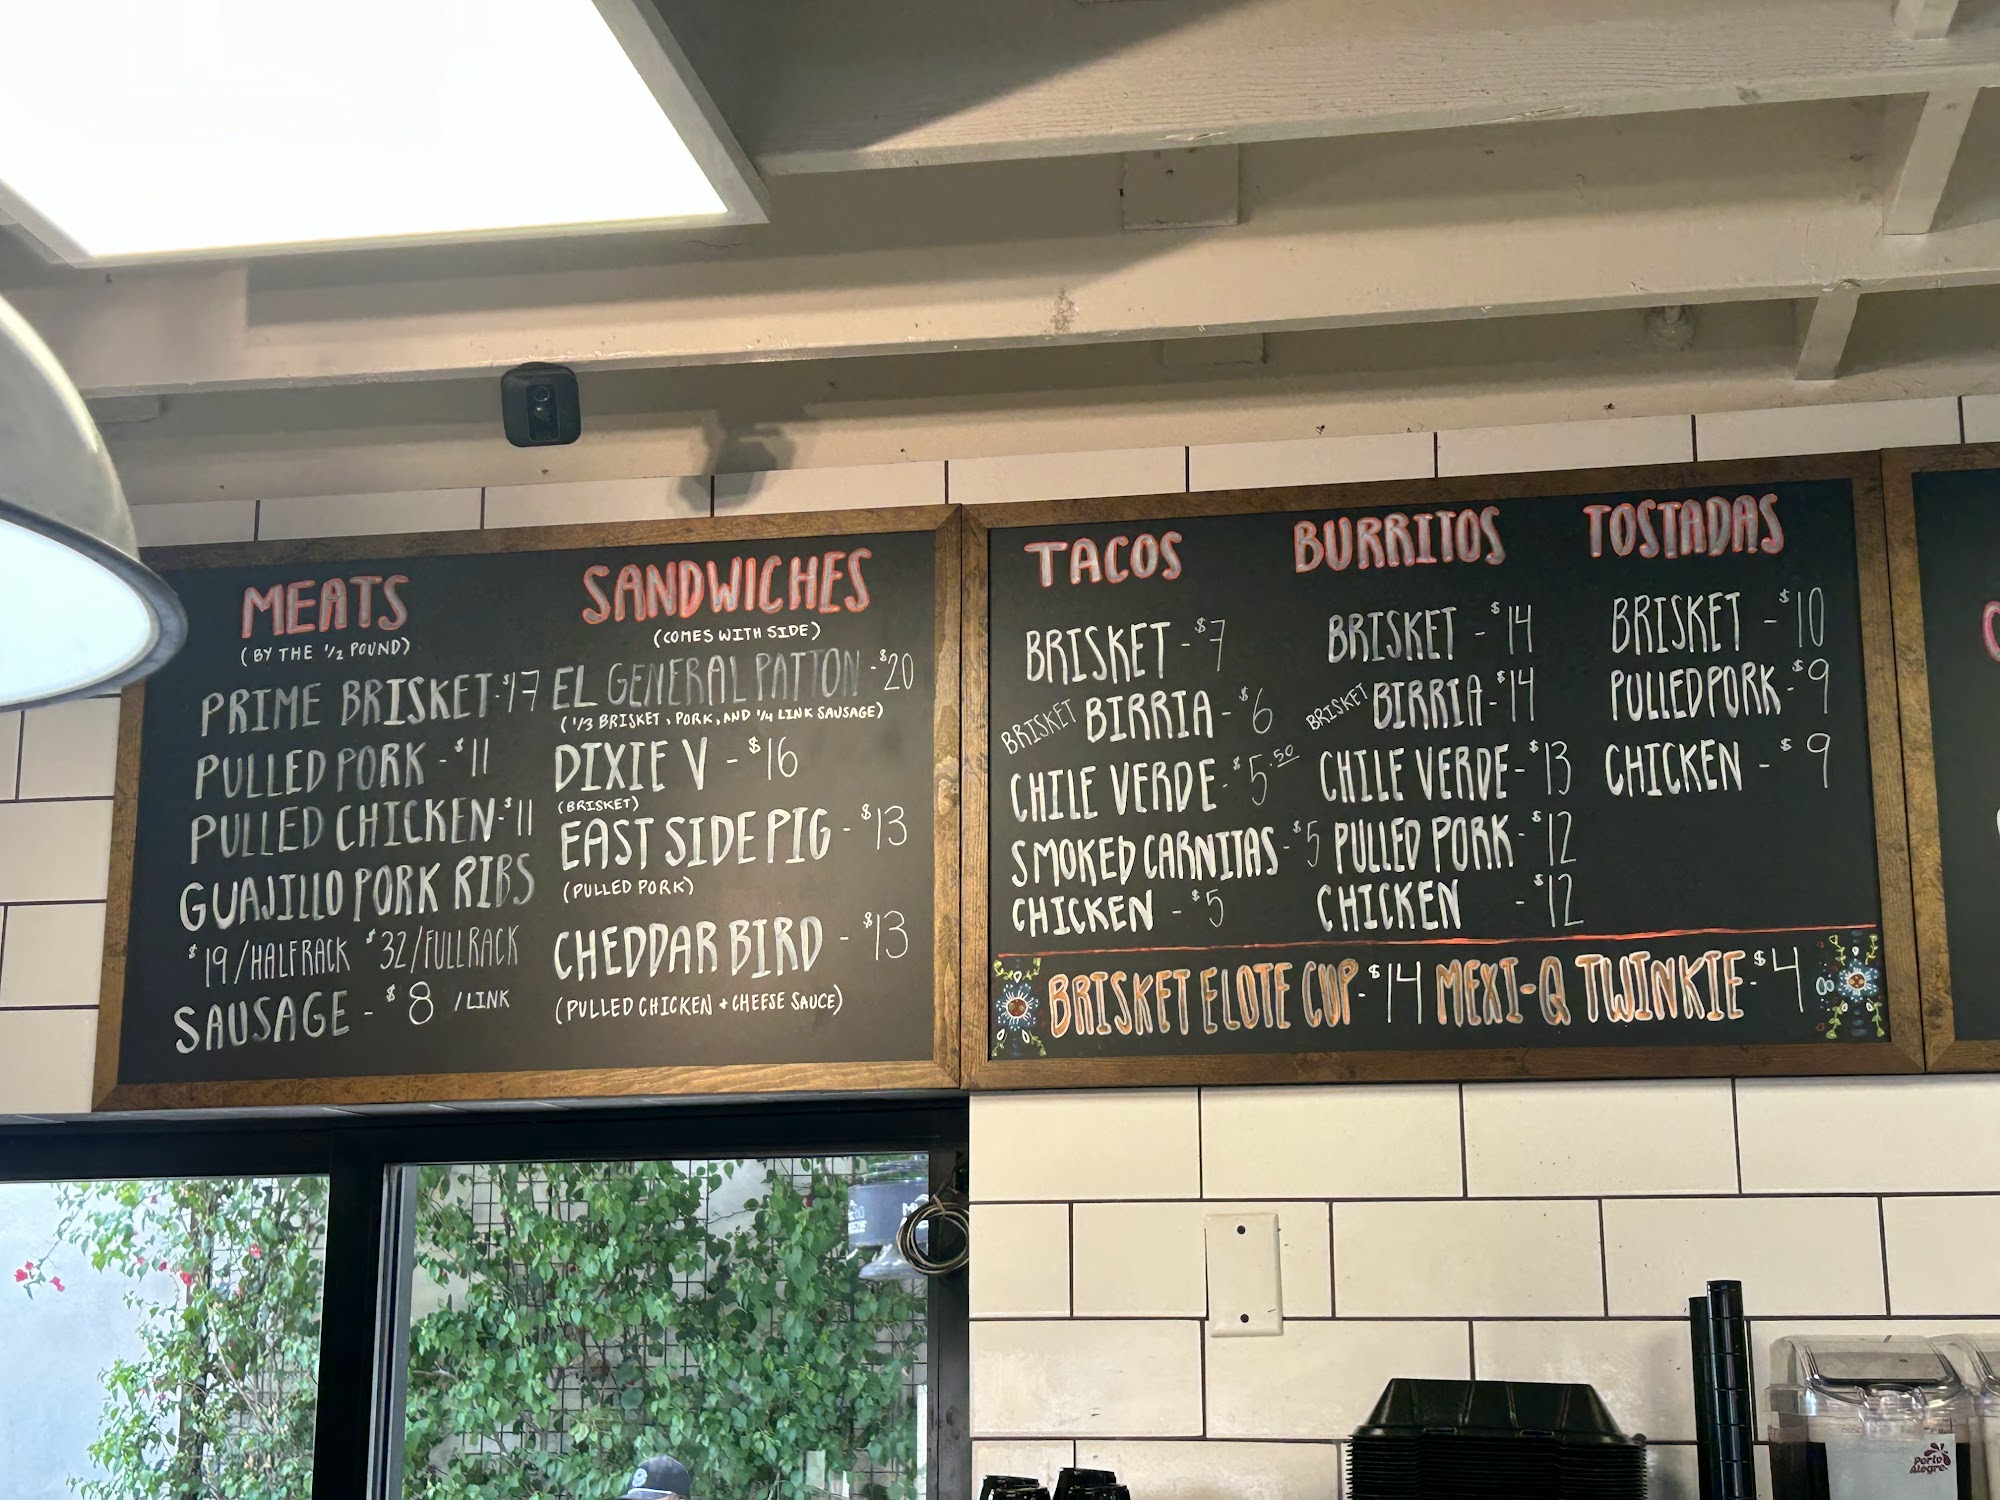 MEATS
(BY THE 1/2 POUND)
PRIME BRISKET-$17
PULLED PORK-$11
PULLED CHICKEN-$11
GUAJILLO PORK RIBS
$19/HALFRACK $32/FULLRACK
SAUSAGE-$8/LINK
SANDWICHES
(COMES WITH SIDE)
EL GENERAL PATTON-$20
(1/3 BRISKET, PORK, AND 1/4 LINK SAUSAGE)
DIXIE V-$16
(BRISKET)
EAST SIDE PIG-$13
(PULLED PORK)
CHEDDAR BIRD-$13
(PULLED CHICKEN + CHEESE SAUCE)
TACOS
BRISKET-$7
BRISKET BIRRIA-$6
CHILE VERDE-$5.50
SMOKED CARNITAS-$5
CHICKEN-$5
BURRITOS
BRISKET-$14
BRISKET BIRRIA-$14
CHILE VERDE-$13
PULLED PORK-$12
CHICKEN-$12
TOSTADAS
BRISKET-$10
PULLED PORK-$9
CHICKEN-$9
BRISKET ELOTE CUP-$14 MEXI-Q TWINKIE-$4
Porto Alegre